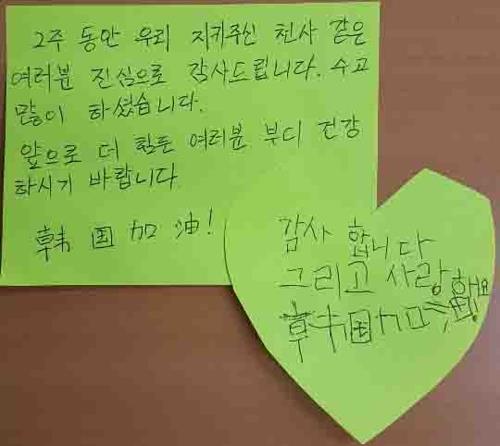 2주 동안 우리 지키주신 천사 같은
여러분 진심으로 감사드립니다. 수고
많이 하셨습니다.
앞으로 더 힘든 여러분 부디 건강
하시기 바랍니다
韩国加油!
감사 합니다
그리고 사랑해요
韩国加油!